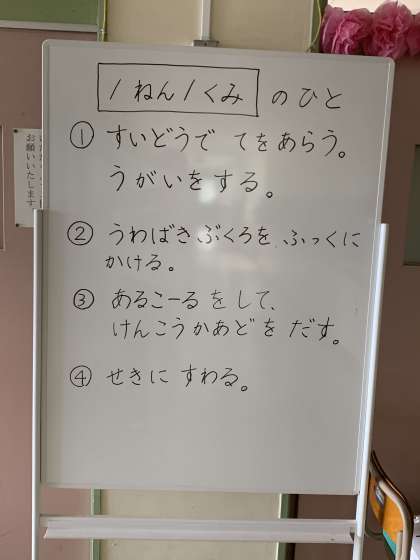 1ねん1くみ のひと
① すいどうで てをあらう。
うがいをする。
② うわばきぶくろを ふっくに
かける。
③ あるこーる をして、
けんこうかあどを だす。
④ せきに すわる。
お願いいたします